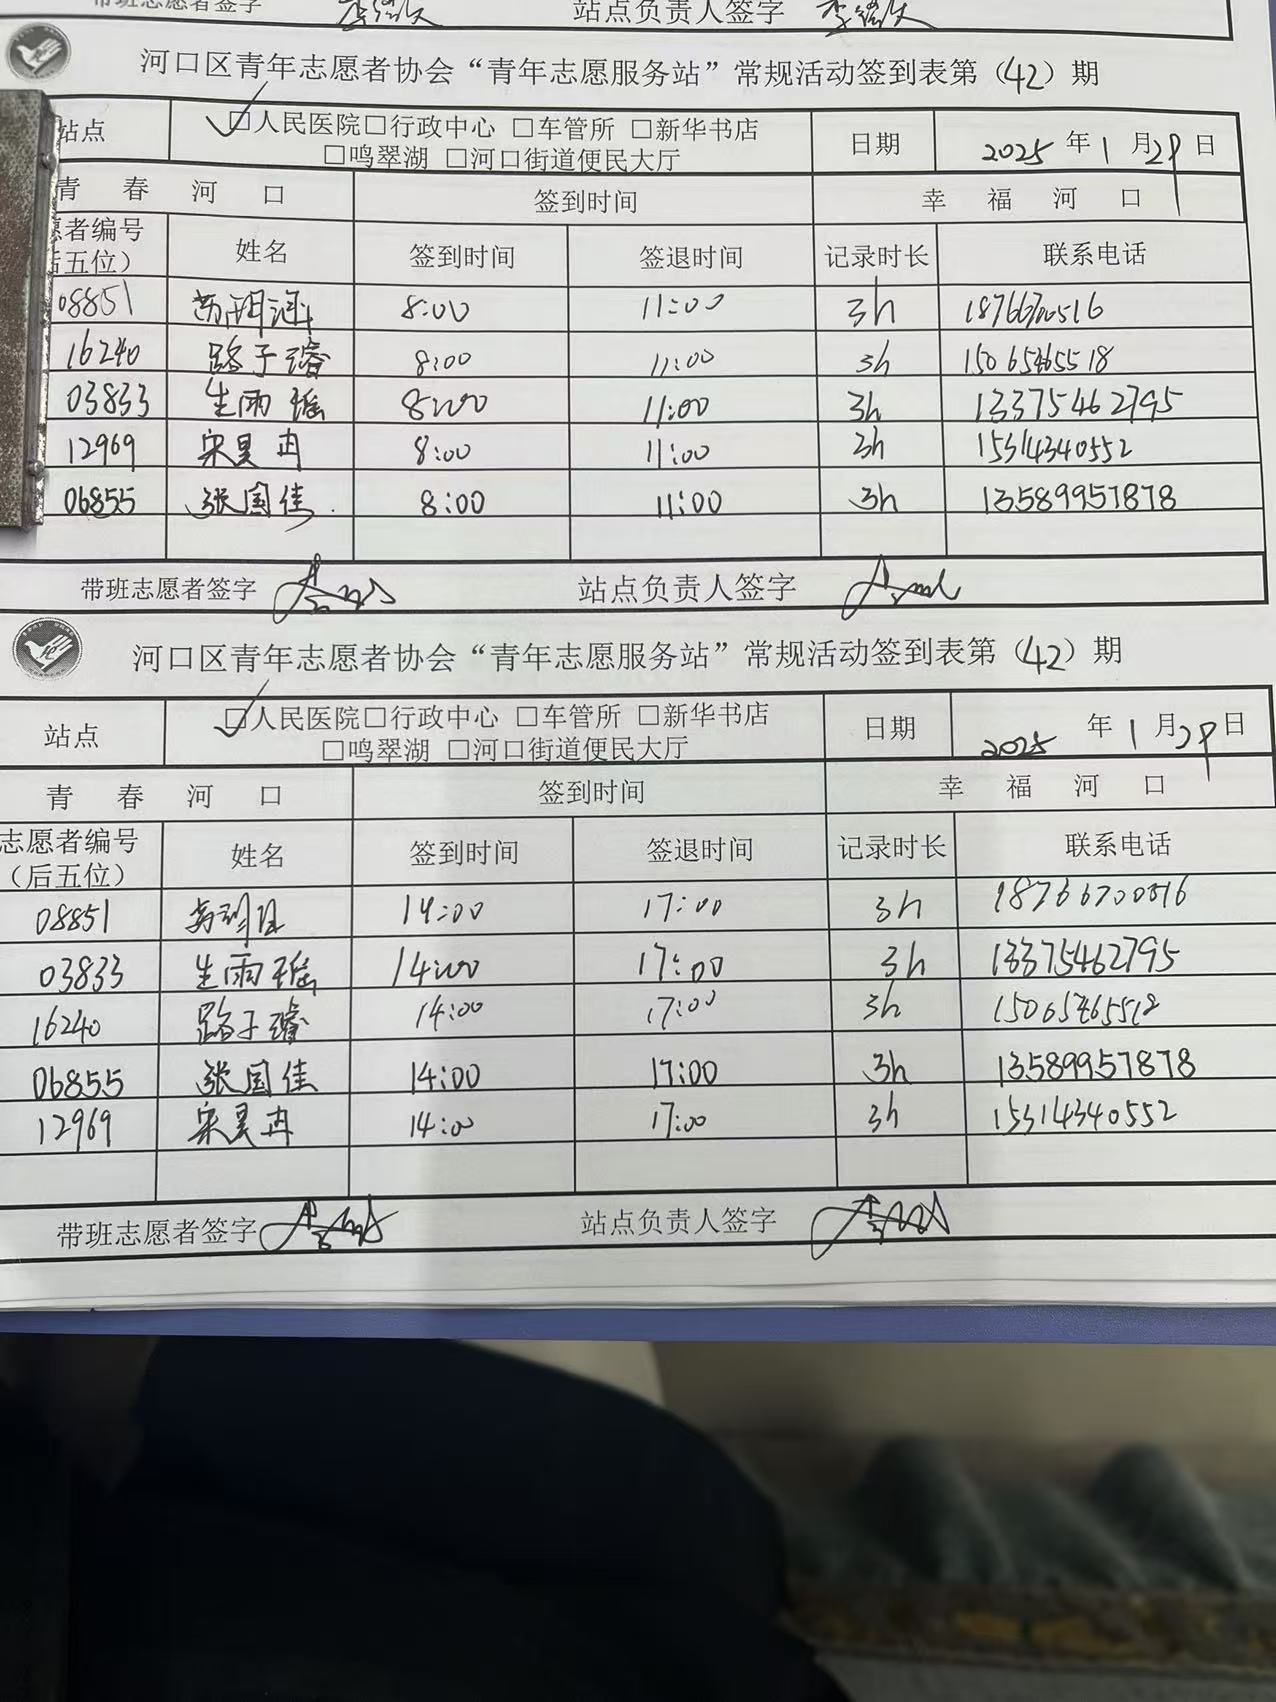 带班志愿者签字 站点负责人签字
河口区青年志愿者协会“青年志愿服务站”常规活动签到表第（42）期
站点 ☑人民医院□行政中心 □车管所 □新华书店 日期 2025年1月29日
□鸣翠湖 □河口街道便民大厅
青 春 河 口 签到时间 幸 福 河 口
愿者编号 姓名 签到时间 签退时间 记录时长 联系电话
后五位）
08851 8:00 11:00 3h 18766700516
16240 路子璿 8:00 11:00 3h 15065465518
03833 生雨瑶 8:00 11:00 3h 13375462795
12969 宋昊冉 8:00 11:00 3h 15314340552
06855 张国佳 8:00 11:00 3h 13589957878
带班志愿者签字 站点负责人签字
河口区青年志愿者协会“青年志愿服务站”常规活动签到表第（42）期
站点 ☑人民医院□行政中心 □车管所 □新华书店 日期 2025年1月29日
□鸣翠湖 □河口街道便民大厅
青 春 河 口 签到时间 幸 福 河 口
志愿者编号 姓名 签到时间 签退时间 记录时长 联系电话
（后五位）
08851 14:00 17:00 3h 18766700516
03833 生雨瑶 14:00 17:00 3h 13375462795
16240 路子璿 14:00 17:00 3h 15065465518
06855 张国佳 14:00 17:00 3h 13589957878
12969 宋昊冉 14:00 17:00 3h 15314340552
带班志愿者签字 站点负责人签字